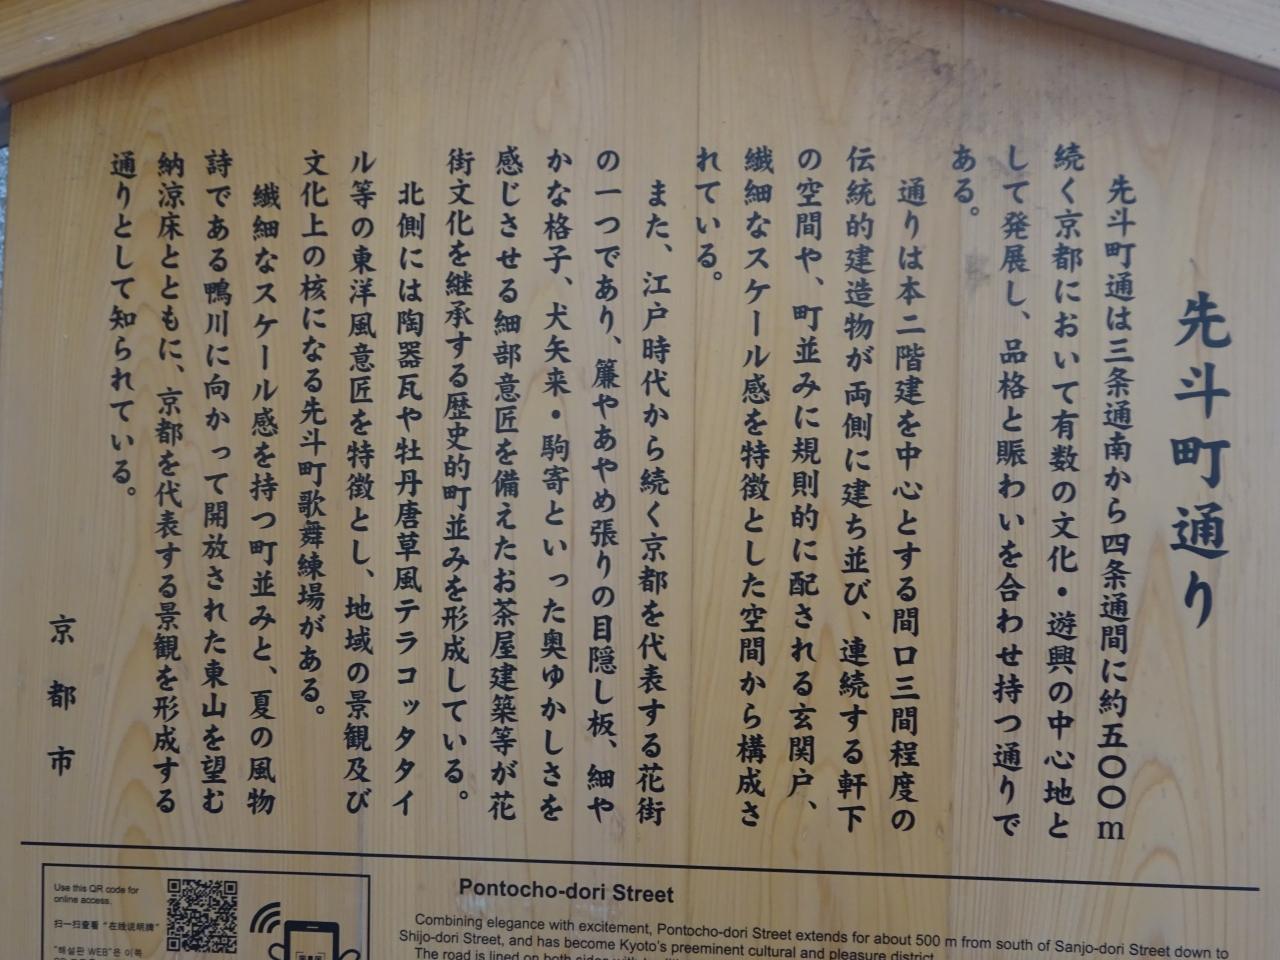 先斗町通り
先斗町通は三条通南から四条通間に約五〇〇m
続く京都において有数の文化・遊興の中心地と
して発展し、品格と賑わいを合わせ持つ通りで
ある。
通りは本二階建を中心とする間口三間程度の
伝統的建造物が両側に建ち並び、連続する軒下
の空間や、町並みに規則的に配される玄関戸、
繊細なスケール感を特徴とした空間から構成さ
れている。
また、江戸時代から続く京都を代表する花街
の一つであり、簾やあやめ張りの目隠し板、細や
かな格子、犬矢来・駒寄といった奥ゆかしさを
感じさせる細部意匠を備えたお茶屋建築等が花
街文化を継承する歴史的町並みを形成している。
北側には陶器瓦や牡丹唐草風テラコッタタイ
ル等の東洋風意匠を特徴とし、地域の景観及び
文化上の核になる先斗町歌舞練場がある。
繊細なスケール感を持つ町並みと、夏の風物
詩である鴨川に向かって開放された東山を望む
納涼床とともに、京都を代表する景観を形成する
通りとして知られている。
京都市
Use this QR code for
online access.
扫一扫查看“在线说明牌”
"해설판 WEB"은 이쪽
Pontocho-dori Street
Combining elegance with excitement, Pontocho-dori Street extends for about 500 m from south of Sanjo-dori Street down to
Shijo-dori Street, and has become Kyoto's preeminent cultural and pleasure district.
The road is lined on both sides with